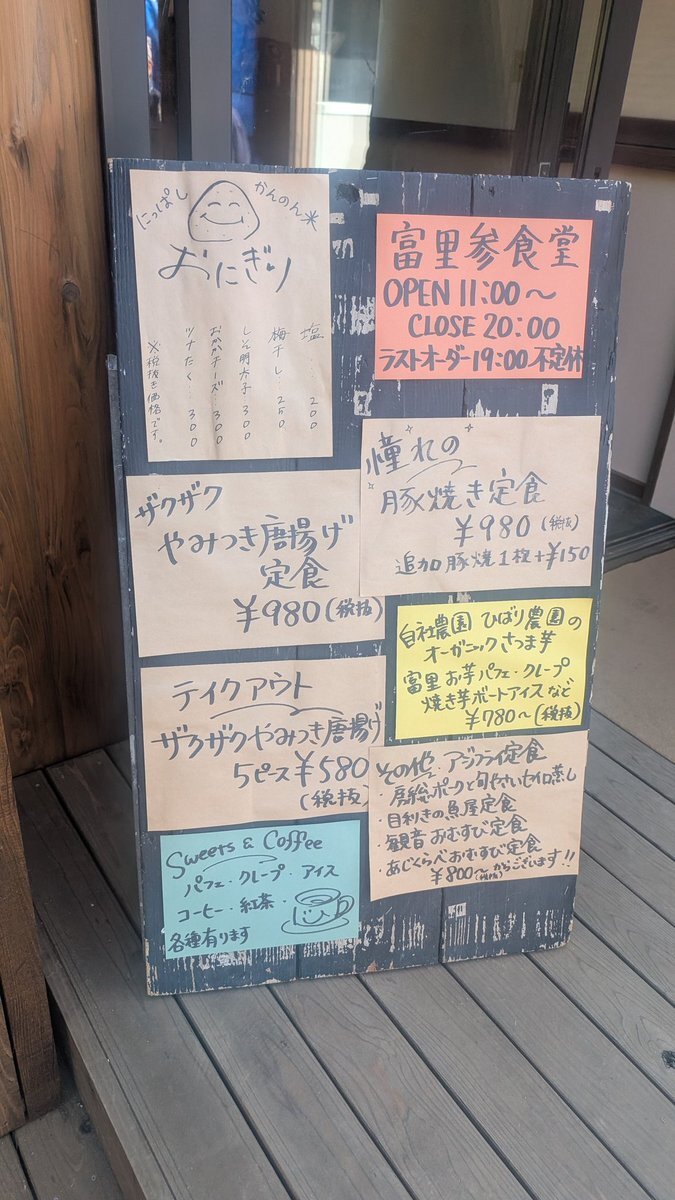 にっぱし
かんのん米
おにぎり
塩……200
梅干し…250
しそ明太子 300
おかかチーズ…300
ツナたく…300
※税抜き価格です。
富里参食堂
OPEN 11:00〜
CLOSE 20:00
ラストオーダー19:00 不定休
憧れの
豚焼き定食
¥980(税抜)
追加豚焼1枚+¥150
ザクザク
やみつき唐揚げ
定食
¥980(税抜)
自社農園 ひばり農園の
オーガニックさつま芋
富里お芋パフェ・クレープ
焼き芋ボートアイスなど
¥780〜(税抜)
テイクアウト
ザクザクやみつき唐揚げ
5ピース¥580
(税抜)
その他・アジフライ定食
・房総ポークと旬やさいセイロ蒸し
・目利きの魚屋定食
・観音おむすび定食
・あじくらべおむすび定食
¥800(税抜)からございます!!
Sweets & Coffee
パフェ・クレープ・アイス
コーヒー・紅茶・
各種有ります